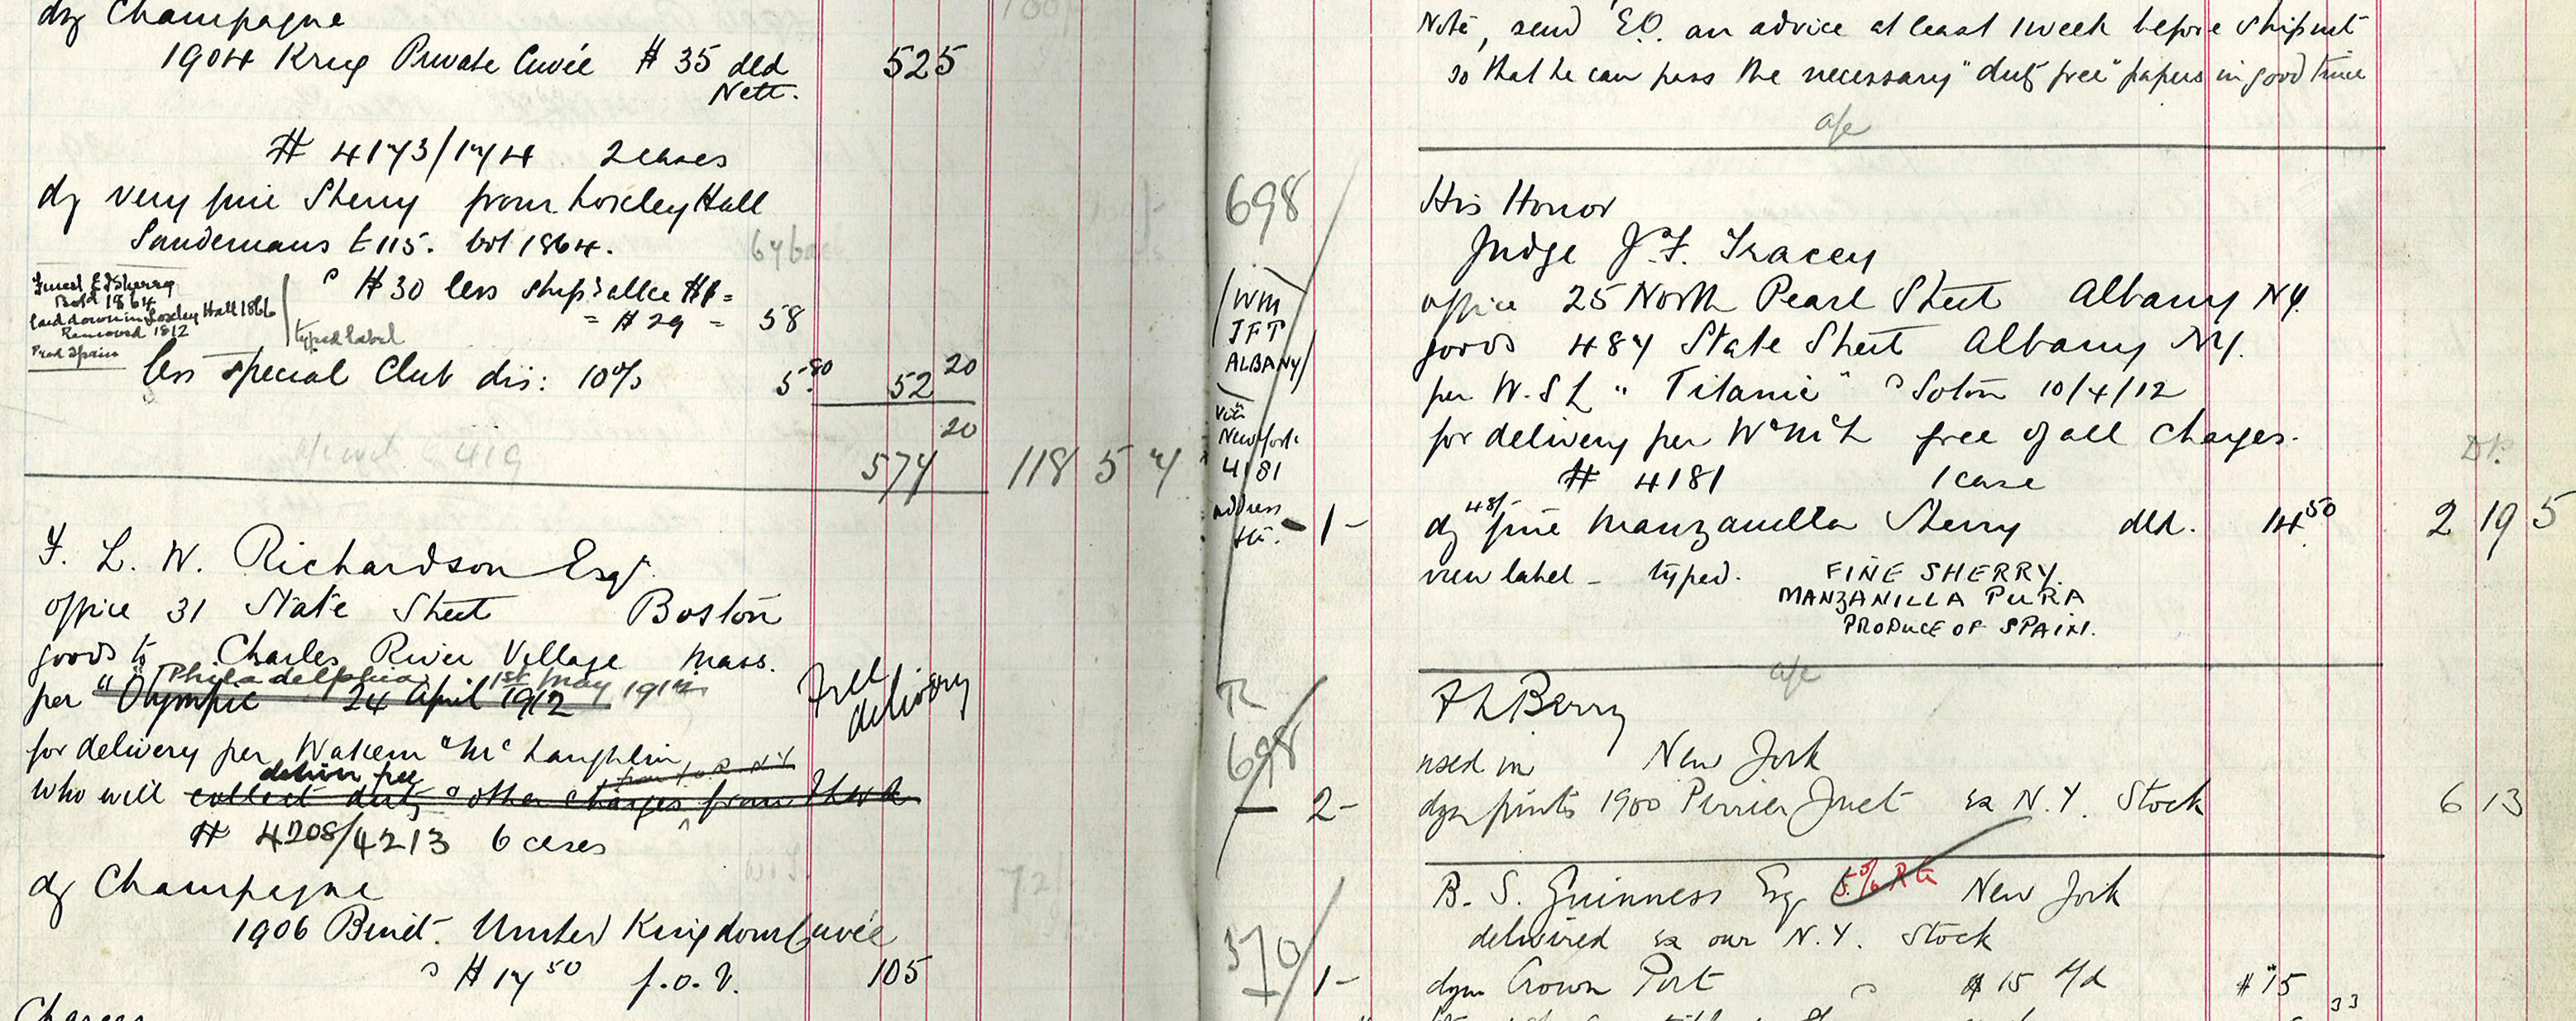 dz Champagne
1904 Krug Private Cuvée $ 35 dld 525
Nett.
# 4173/174 2 cases
dz very fine Sherry from Loxley Hall
Sandemans £115. bot 1864.
Finest E I Sherry
Bottd 1864
laid down in Loxley Hall 1866
Removed 1912
Prod Spain
typed label
$ 30 less ship allce $1 =
= $ 29 = 58
less special Club dis: 10% 5.80 52 20
574 20 118 5 7
F. L. W. Richardson Esqr.
office 31 State Street Boston
goods to Charles River Village Mass.
"Philadelphia 1st May 1912
per "Olympic 24 April 1912
Free
delivery
for delivery per Wakem & McLaughlin
deliver free
who will collect duty & other charges from FLWR
# 4208/4213 6 cases
dz Champagne
1906 Binet. United Kingdom Cuvée
$ 17 50 f.o.b. 105
Charges
Note, send E.O. an advice at least 1 week before shipmt
so that he can pass the necessary "duty free" papers in good time
a/c
698
His Honor
Judge J. F. Tracey
office 25 North Pearl Street Albany N.Y.
goods 487 State Street Albany N.Y.
per W.S.L "Titanic" Soton 10/4/12
for delivery per W & McL free of all charges.
# 4181 1 case
WM
JFT
ALBANY
via
New York
4181
address
1- dz 48/- fine Manzanilla Sherry dld. 14 50 2 19 5
new label - typed. FINE SHERRY.
MANZANILLA PURA
PRODUCE OF SPAIN.
a/c
F L Berry
used in New York
698
2- dzn pints 1900 Perrier Jouet ex N.Y. Stock 6 13
B. S. Guinness Esq 5% New York
delivered ex our N.Y. Stock
370
1- dzn Crown Port $ 15 $ 15
33